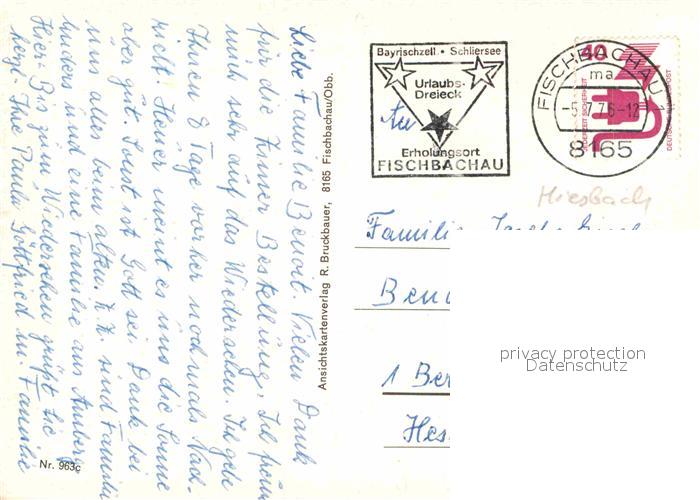 Liebe Familie Benoit. Vielen Dank
für die Zimmer Bestellung, Ich freue
mich sehr auf das Wiedersehen. Ich gebe
Ihnen 8 Tage vorher nochmals Nach-
richt. Heuer meint es uns die Sonne
aber gut. Sonst ist Gott sei Dank bei
uns alles beim alten. Z. Z. sind Familie
und eine Familie aus Amberg
hier. Bis zum Wiedersehen grüßt Sie
herz. Ihre Paula Gottfried m. Familie
Nr. 963c
Ansichtskartenverlag R. Bruckbauer, 8165 Fischbachau/Obb.
Bayrischzell • Schliersee
Urlaubs-
Dreieck
Erholungsort
FISCHBACHAU
FISCHBACHAU 1
ma
-5.-7.76-12
8165
40
JEDERZEIT SICHERHEIT
DEUTSCHE BUNDESPOST
Miesbach
Familie
Ben
1 Ber
Hes
privacy protection
Datenschutz